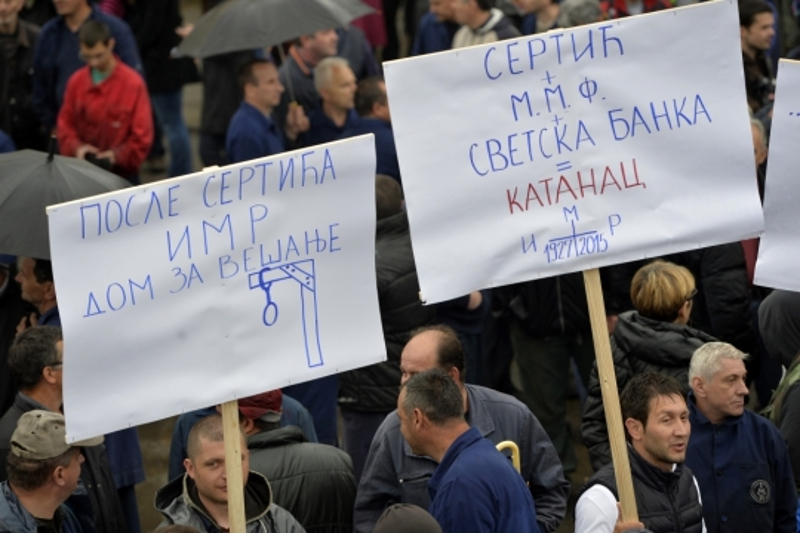 ПОСЛЕ СЕРТИЋА
ИМР
ДОМ ЗА ВЕШАЊЕ
СЕРТИЋ
+
М.М.Ф.
+
СВЕТСКА БАНКА
=
КАТАНАЦ
М
И Р
1927 2015